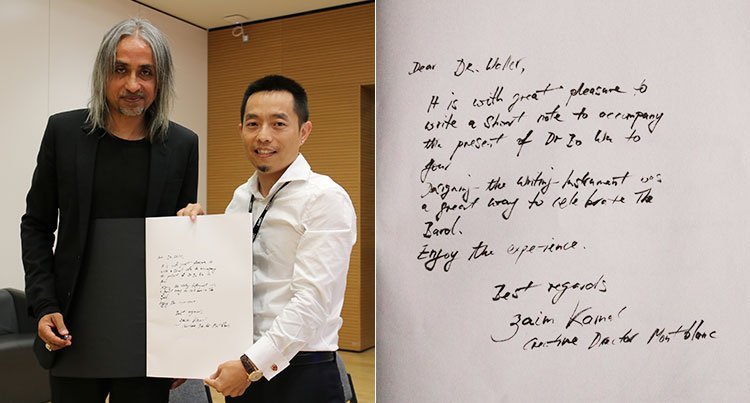 Dear Dr.
It is with great pleasure to
write a short note to accompany
this present of Dr Bo to
you
Designing the writing instrument was
a great way to celebrate The
Bard.
Enjoy the experience.
Best regards
Zaim Kamal
Creative Director Montblanc